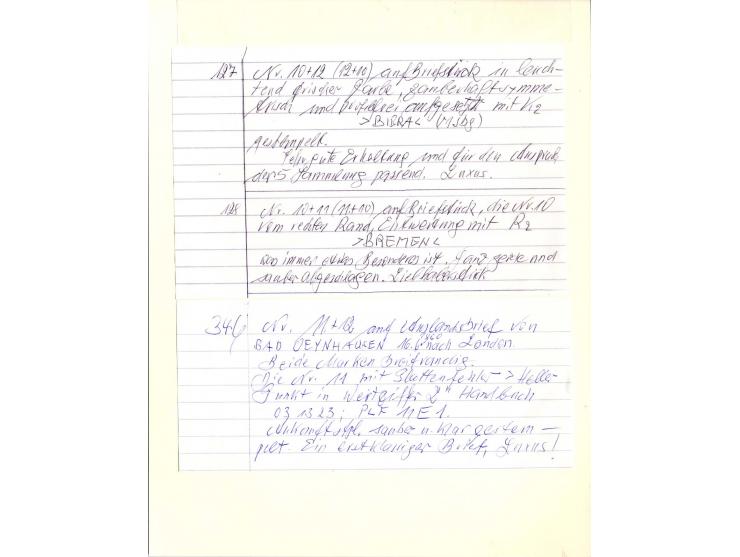 127 Nr. 10+12 (12+10) auf Briefstück in leuch-
tend frischer Farbe, zauberhaft symme-
trisch und perfekt aufgesetzt mit K2
>BIERAL (Msbg)
gestempelt.
Sehr gute Erhaltung und für den Anspruch
der Sammlung passend. Luxus.
128 Nr. 10+11 (11+10) auf Briefstück, die Nr. 10
vom rechten Rand, Entwertung mit R2
>BREMEN<
wo immer etwas Besonderes ist. Ganz gerade und
sauber abgeschlagen. Liebhaberstück
346 Nr. 11+12 auf Auslandsbrief von
BAD OEYNHAUSEN 16.6. nach London.
Beide Marken breitrandig.
Die Nr. 11 mit Plattenfehler > Heller
Punkt in Wertziffer 2" Handbuch
031323; PLF 11E1.
Ankunftstpl. sauber u. klar gestem-
pelt. Ein erstklassiger Brief, Luxus!